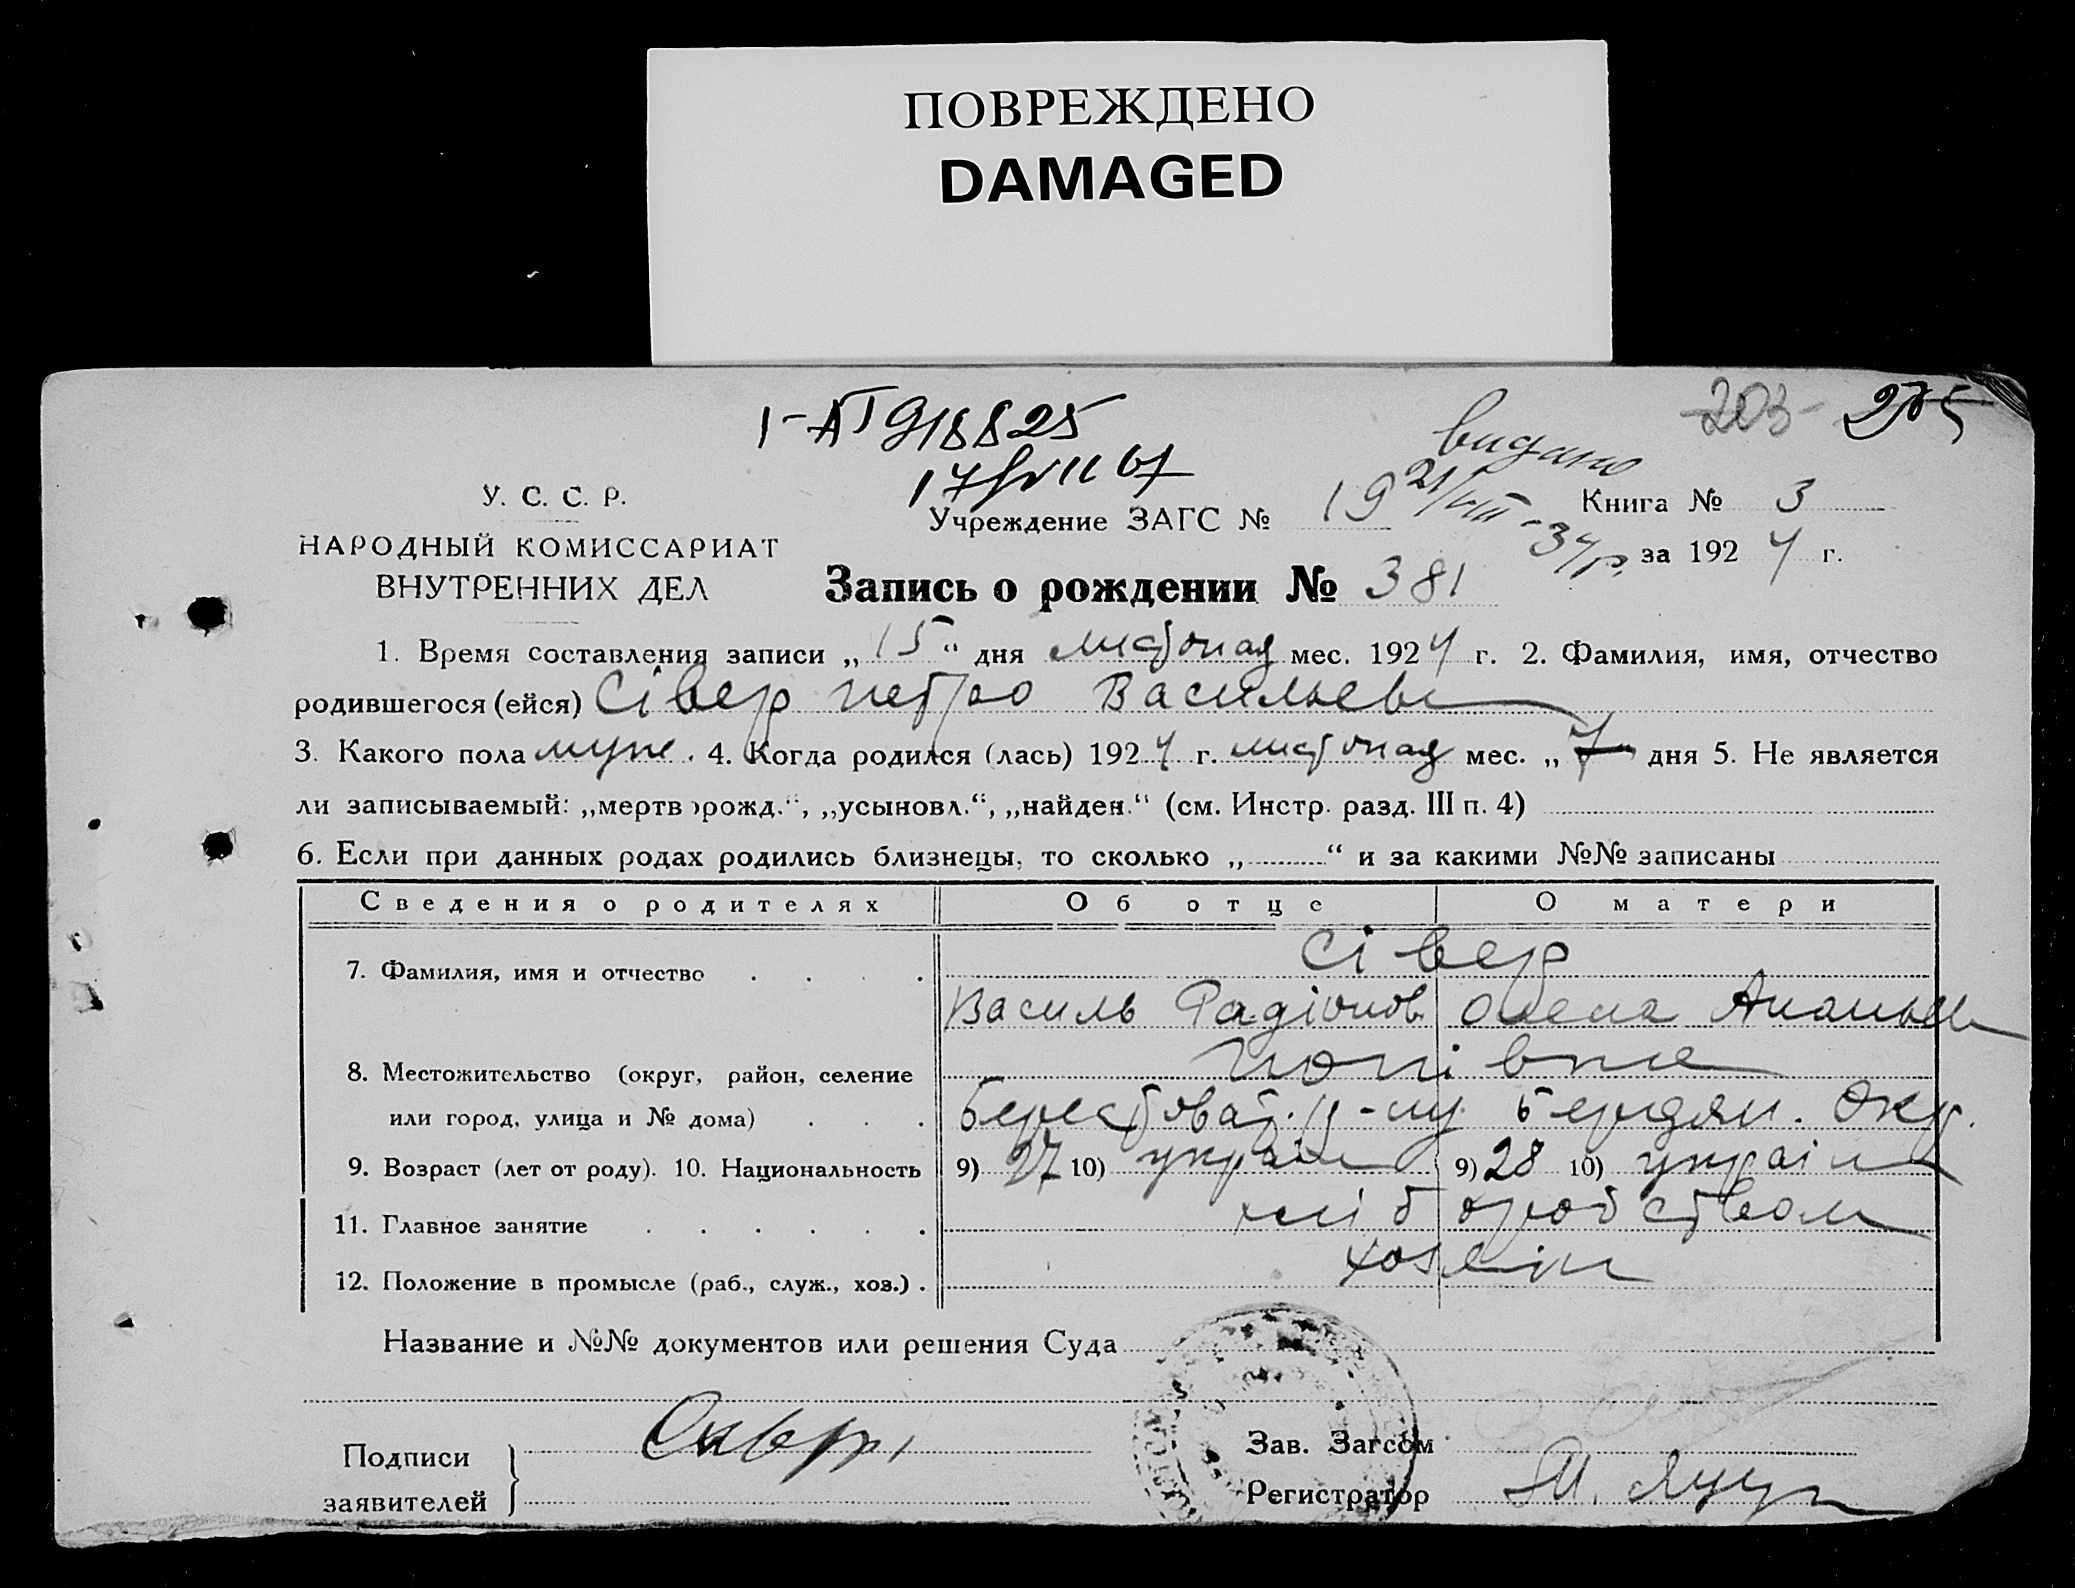 ПОВРЕЖДЕНО
DAMAGED
203 205
I-АП 918825
видано
21/VIII-34р.
У. С. С. Р.
НАРОДНЫЙ КОМИССАРИАТ
ВНУТРЕННИХ ДЕЛ
Учреждение ЗАГС № 19
Книга № 3
за 1924 г.
Запись о рождении № 381
1. Время составления записи „15“ дня листопад мес. 1924 г. 2. Фамилия, имя, отчество
родившегося (ейся) Сівер Петро Васильев
3. Какого пола муж. 4. Когда родился (лась) 1924 г. листопад мес. „7“ дня 5. Не является
ли записываемый: „мертворожд.“, „усыновл.“, „найден.“ (см. Инстр. разд. III п. 4)
6. Если при данных родах родились близнецы, то сколько „ “ и за какими №№ записаны
Сведения о родителях Об отце О матери
7. Фамилия, имя и отчество . . . . Сівер
Василь Радіонов. Олена Ананьев
8. Местожительство (округ, район, селение
или город, улица и № дома) . . . Берестоват. р-ну Бердян. Окр.
9. Возраст (лет от роду). 10. Национальность 9) 27 10) україн 9) 28 10) україн
11. Главное занятие . . . . . . хліборобством
12. Положение в промысле (раб., служ., хоз.) . хозяін
Название и №№ документов или решения Суда
Подписи
заявителей
Зав. Загсом
Регистратор